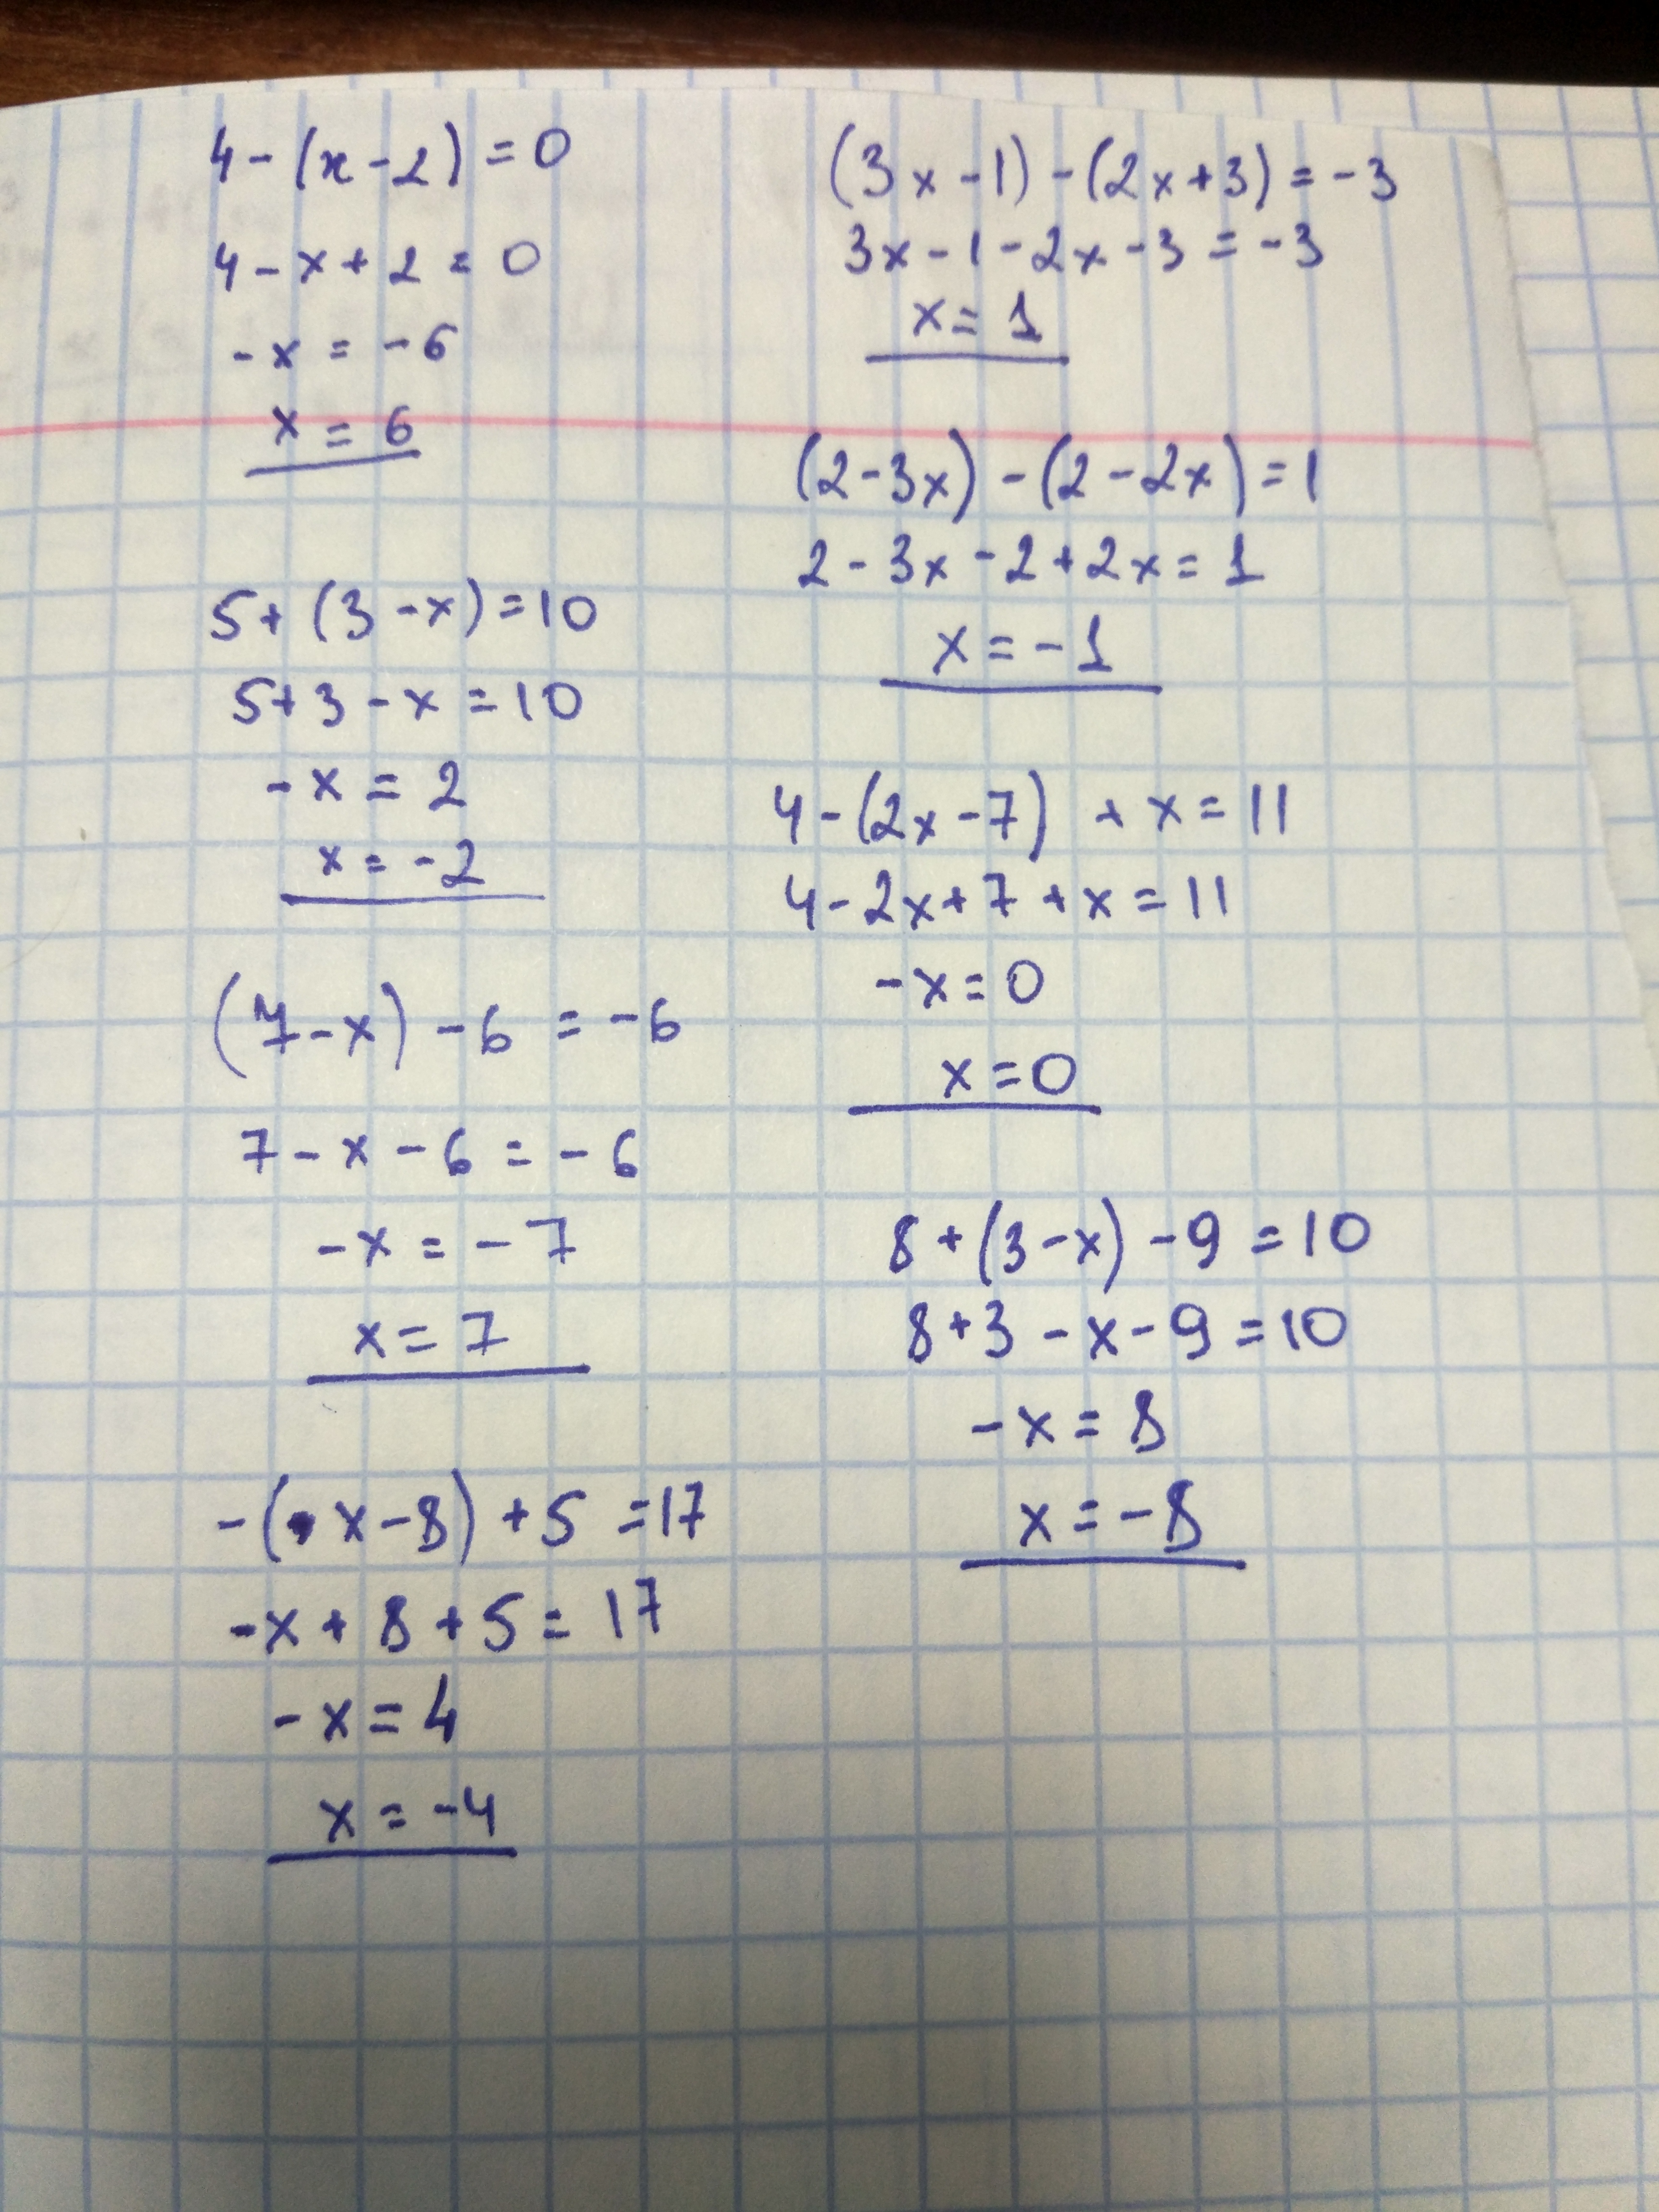 4-(x-2)=0
4-x+2=0
-x=-6
x=6
5+(3-x)=10
5+3-x=10
-x=2
x=-2
(7-x)-6=-6
7-x-6=-6
-x=-7
x=7
-(x-8)+5=17
-x+8+5=17
-x=4
x=-4
(3x-1)-(2x+3)=-3
3x-1-2x-3=-3
x=1
(2-3x)-(2-2x)=1
2-3x-2+2x=1
x=-1
4-(2x-7)+x=11
4-2x+7+x=11
-x=0
x=0
8+(3-x)-9=10
8+3-x-9=10
-x=8
x=-8